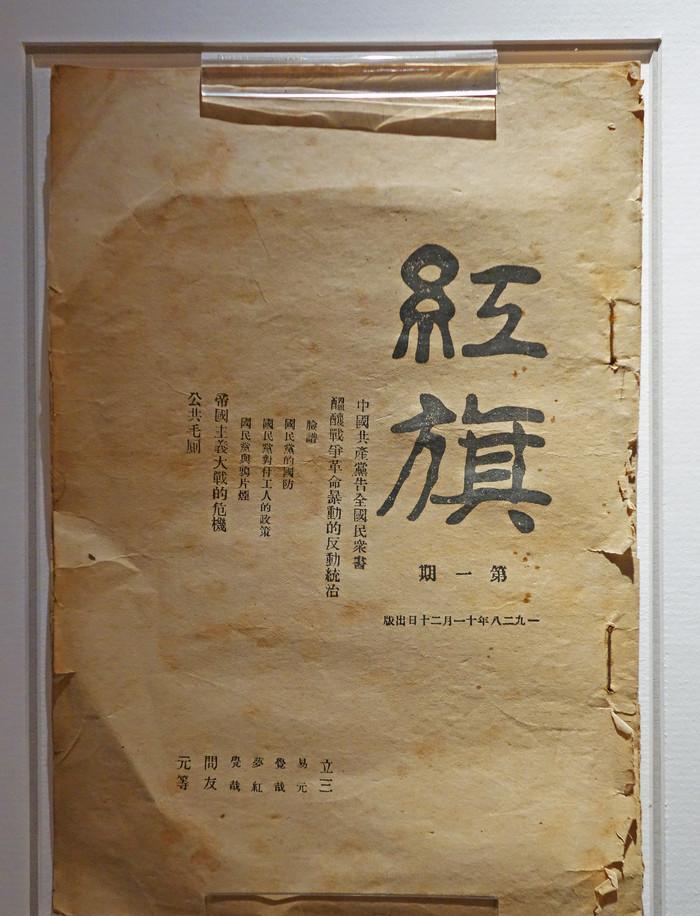 紅旗
第一期
一九二八年十一月二十日出版
中國共產黨告全國民衆書
醞釀戰爭革命暴動的反動統治
立三
臉譜
易元
國民黨的國防
覺哉
國民黨對付工人的政策
夢紅
國民黨與鴉片煙
覺哉
帝國主義大戰的危機
問友
公共毛厠
元等